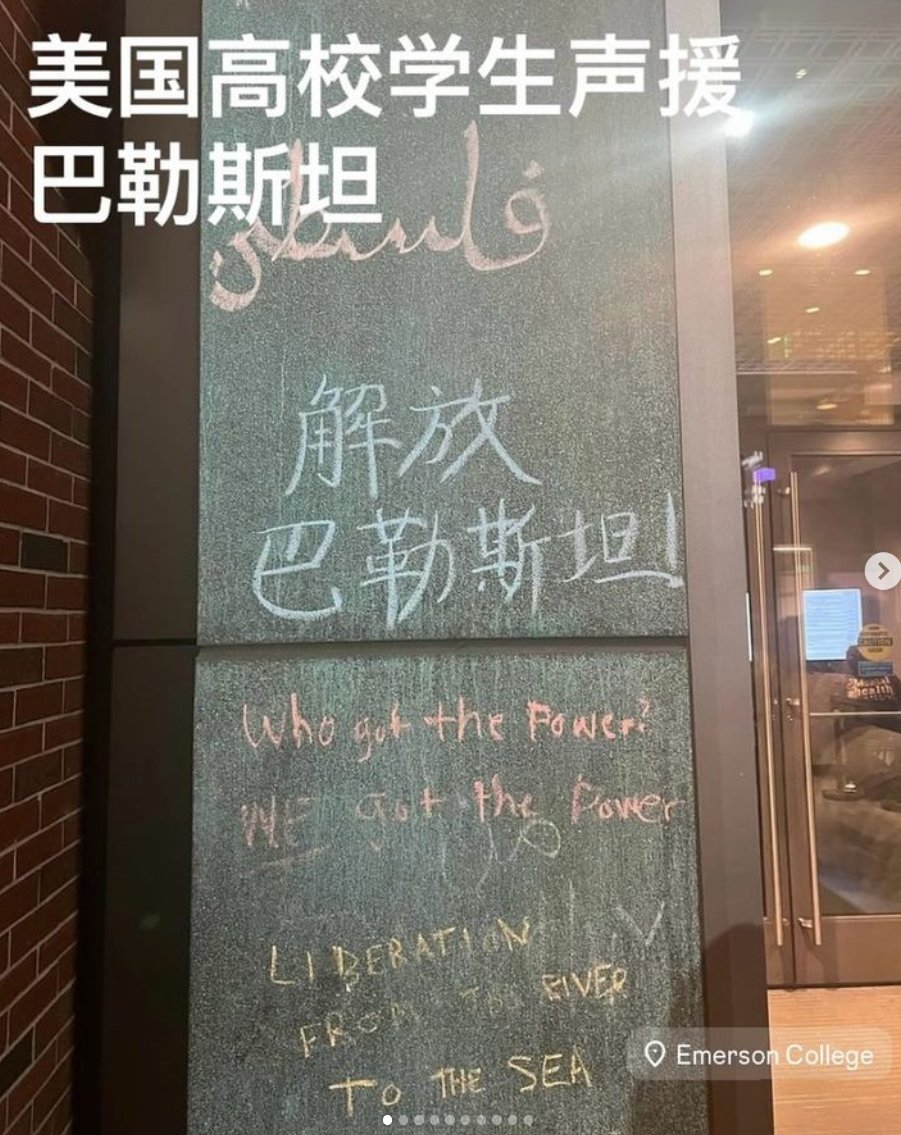 美国高校学生声援
巴勒斯坦
فلسطين
解放
巴勒斯坦!
Who got the Power?
WE got the Power
LIBERATION
FROM THE RIVER
TO THE SEA
CAUTION
Mental
health
Emerson College